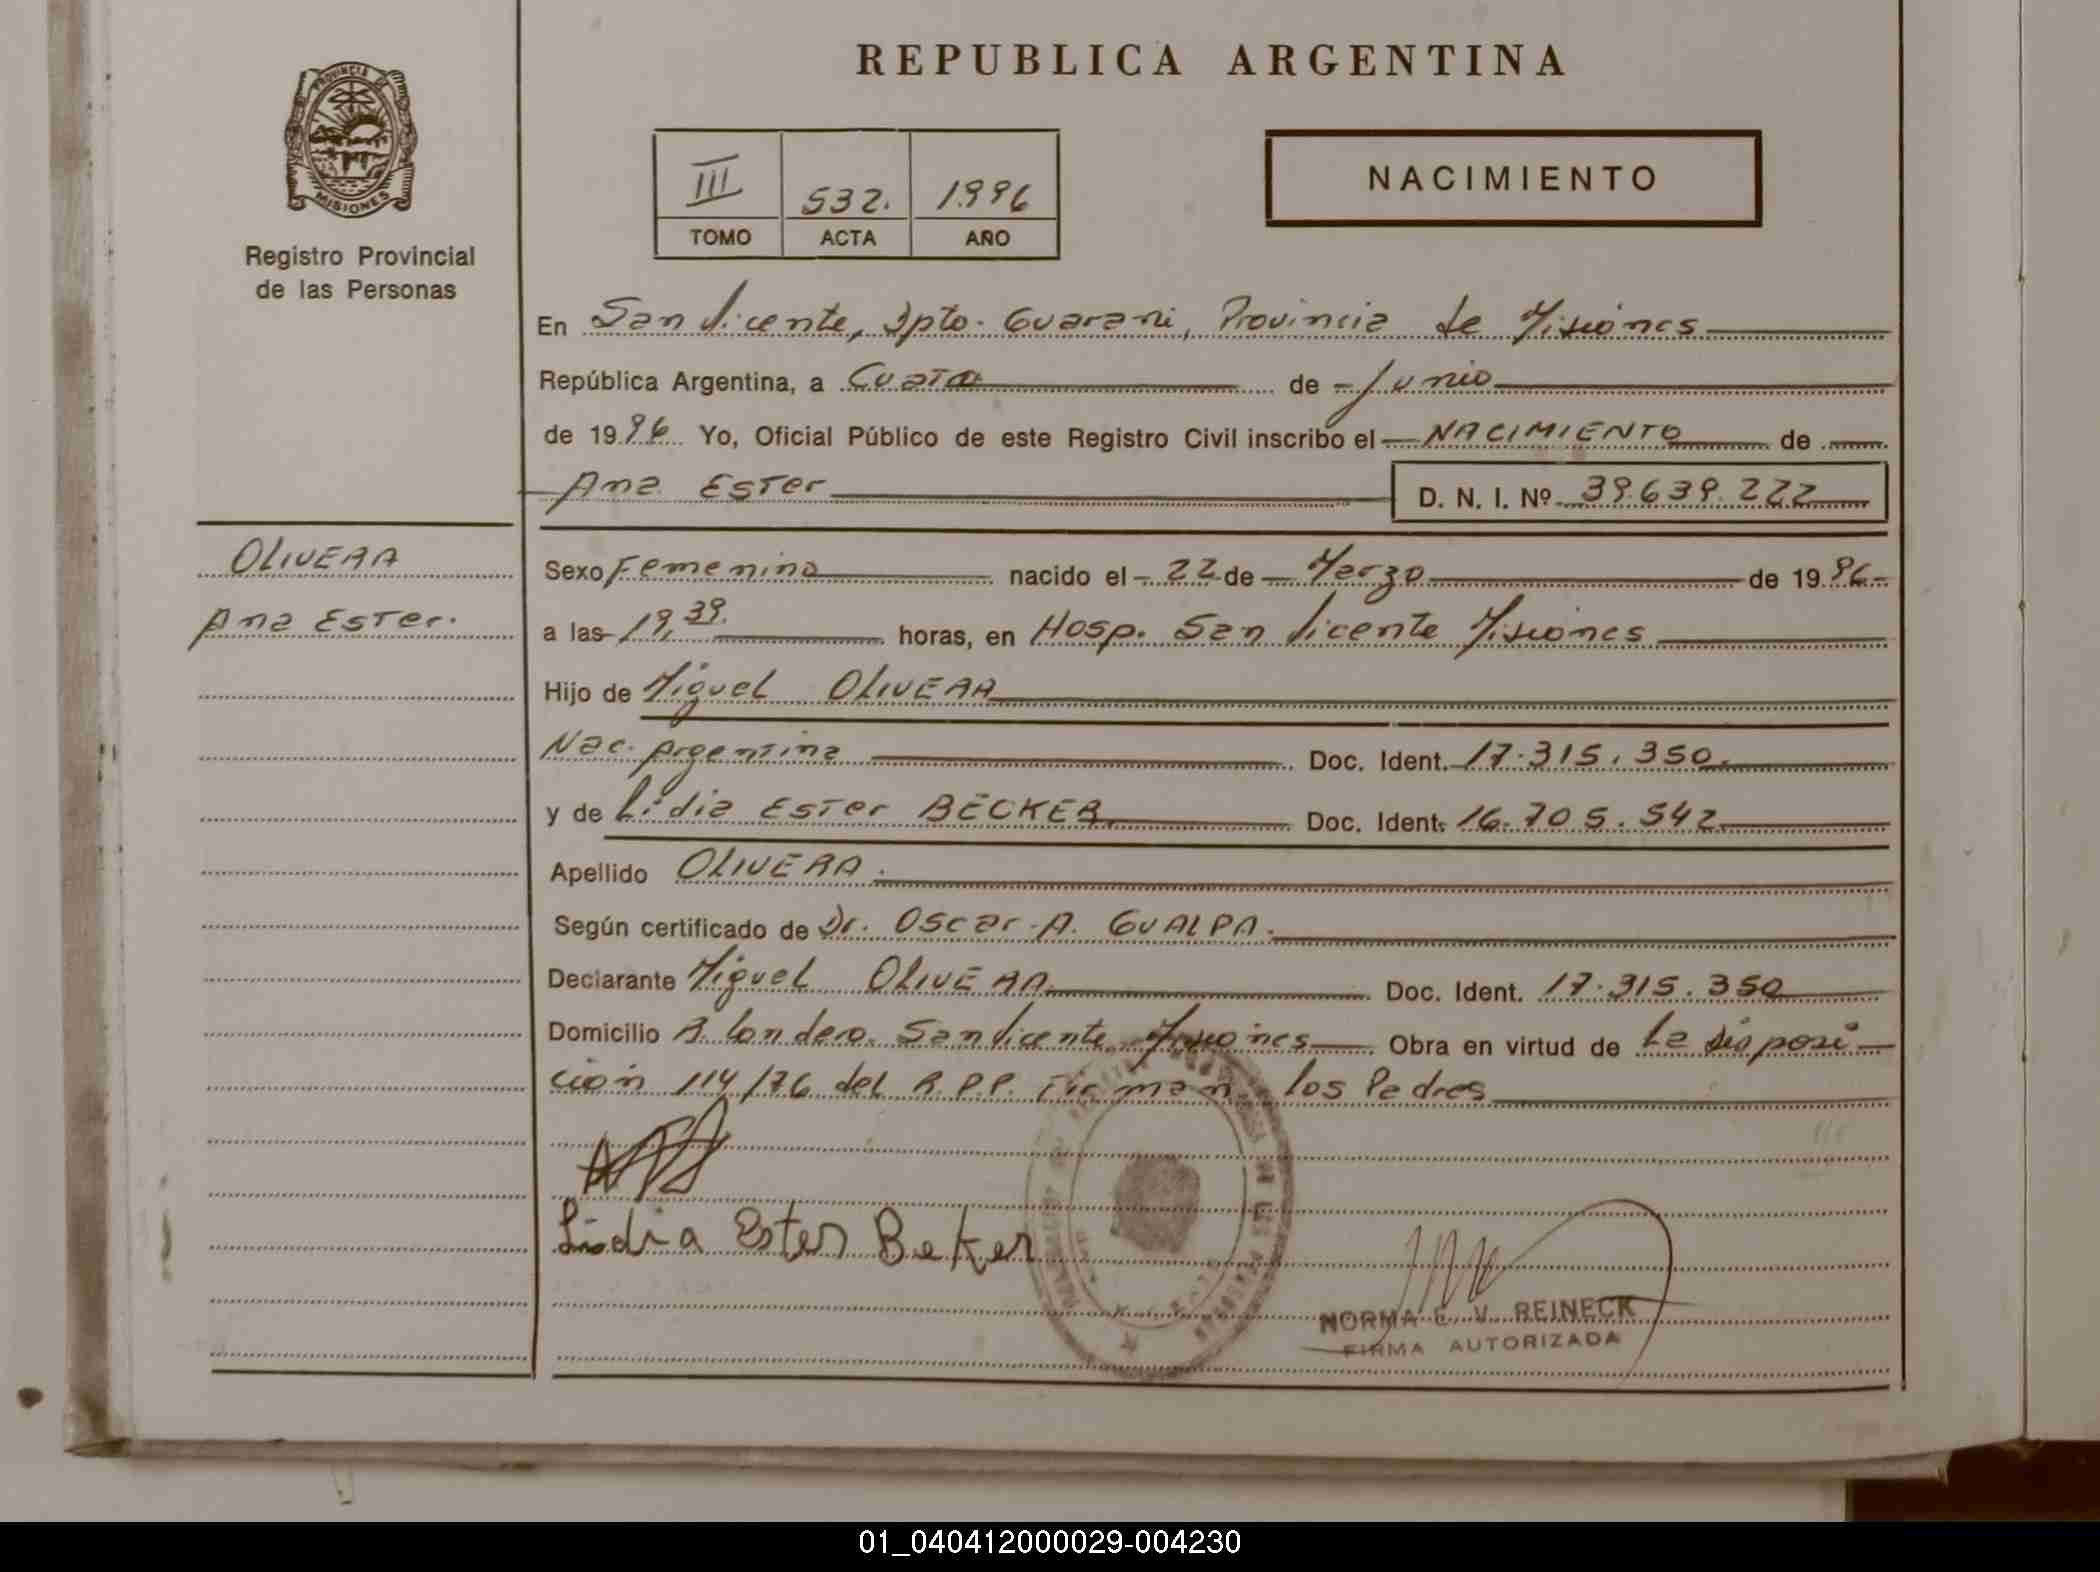 REPUBLICA ARGENTINA
PROVINCIA DE
MISIONES
Registro Provincial
de las Personas
III 532. 1996
TOMO ACTA AÑO
NACIMIENTO
En San Vicente, Dpto. Guarani, Provincia de Misiones
República Argentina, a Cuatro de Junio
de 1996 Yo, Oficial Público de este Registro Civil inscribo el NACIMIENTO de
Ana Ester D. N. I. Nº 39.639.222
OLIVERA
Ana Ester.
Sexo Femenino nacido el 22 de Marzo de 1996
a las 19,39. horas, en Hosp. San Vicente Misiones
Hijo de Miguel OLIVERA
Nac. Argentina Doc. Ident. 17.315.350.
y de Lidia Ester BECKER Doc. Ident. 16.705.542
Apellido OLIVERA.
Según certificado de Dr. Oscar A. GUALPA.
Declarante Miguel OLIVERA Doc. Ident. 17.315.350
Domicilio B. Londero. San Vicente Misiones Obra en virtud de La disposi
ción 114/76 del R.P.P. Firman los Padres
Lidia Ester Beker
NORMA E. V. REINECK
FIRMA AUTORIZADA
01_040412000029-004230